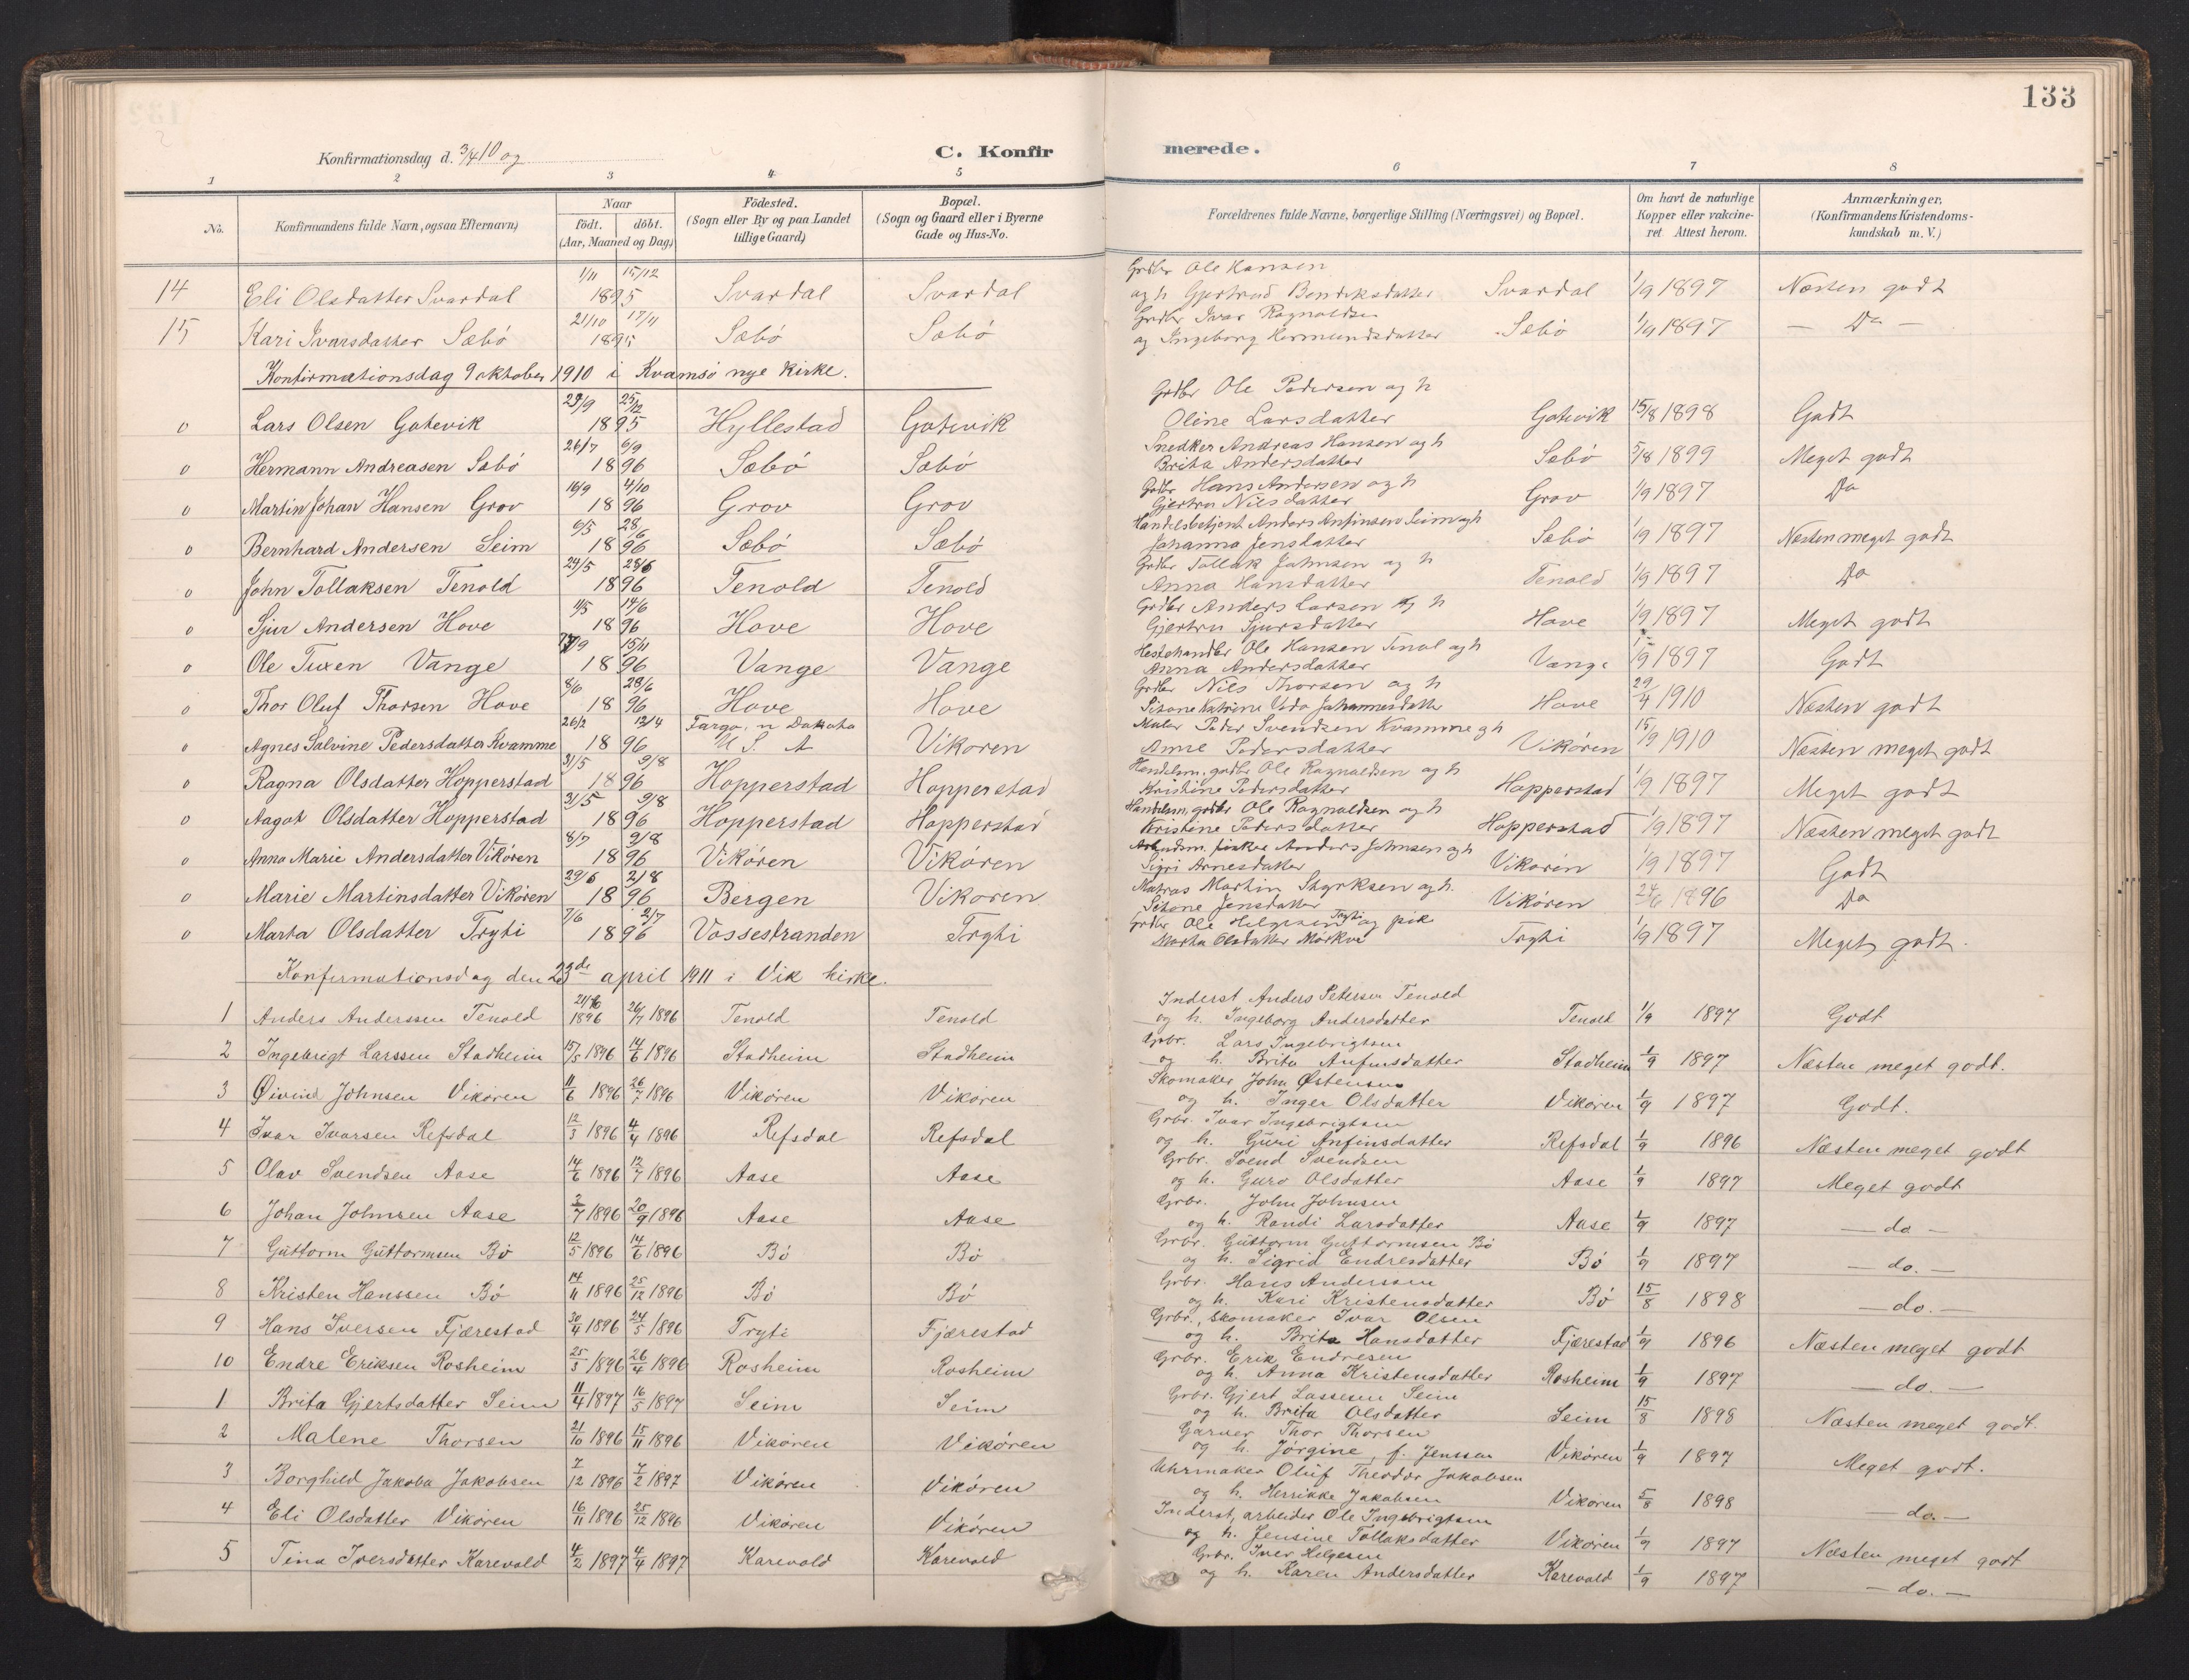 133
Konfirmationsdag d. 3/4 10 og
C. Konfirmerede.
1 2 3 4 5 6 7 8
No. Konfirmandens fulde Navn, ogsaa Efternavn) Naar födt. döbt. (Aar, Maaned og Dag) Födested. (Sogn eller By og paa Landet tillige Gaard) Bopæl. (Sogn og Gaard eller i Byerne Gade og Hus-No. Forældrenes fulde Navne, borgerlige Stilling (Næringsvei) og Bopæl. Om havt de naturlige Kopper eller vakcineret. Attest herom. Anmærkninger. (Konfirmandens Kristendomskundskab m. V.)
14 Eli Olsdatter Svardal 1/11 15/12 1895 Svardal Svardal Grdbr Ole Hansen og h Gjertrud Bendiksdatter Svardal 1/9 1897 Næsten godt
15 Kari Ivarsdatter Sæbö 21/10 17/11 1895 Sæbö Sæbö Grdbr Ivar Ragnvaldsen og Ingeborg Hermundsdatter Sæbö 1/9 1897 – Do –
Konfirmationsdag 9 oktober 1910 i Kvamsö nye Kirke.
o Lars Olsen Gotevik 29/9 25/12 1895 Hyllestad Gotevik Grdbr Ole Pedersen og h Oline Larsdatter Gotevik 15/8 1898 Godt
o Hermann Andreasen Sæbö 26/7 6/9 1896 Sæbö Sæbö Snedker Andreas Hansen og h Brita Andersdatter Sæbö 5/8 1899 Meget godt
o Martin Johan Hansen Grov 16/9 4/10 1896 Grov Grov Grdbr Hans Andersen og h Gjertru Nilsdatter Grov 1/9 1897 Do
o Bernhard Andersen Seim 6/5 28/6 1896 Sæbö Sæbö Handelsbetjent Anders Anfinsen Seim og h Johanna Jensdatter Sæbö 1/9 1897 Næsten meget godt
o John Tollaksen Tenold 29/5 28/6 1896 Tenold Tenold Grdbr Tollak Johnsen og h Anna Hansdatter Tenold 1/9 1897 Do
o Sjur Andersen Hove 1/5 14/6 1896 Hove Hove Grdbr Anders Larsen og h Gjertru Sjursdatter Hove 1/9 1897 Meget godt
o Ole Tuxen Vange 15/11 1896 Vange Vange Hestehandler Ole Hansen Tenol og h Anna Andersdatter Vange 1/9 1897 Godt
o Thor Oluf Thorsen Hove 8/6 28/6 1896 Hove Hove Grdbr Nils Thorsen og h Johannesdatter Hove 29/4 1910 Næsten godt
o Agnes Salvine Pedersdatter Kvamme 26/2 12/4 1896 Fargo, n Dakota U S A Vikören Maler Peder Svendsen Kvamme og h Anne Pedersdatter Vikören 15/9 1910 Næsten meget godt
o Ragna Olsdatter Hopperstad 31/5 9/8 1896 Hopperstad Hopperstad Handelsm, grdbr Ole Ragnvaldsen og h Kristine Pedersdatter Hopperstad 1/9 1897 Meget godt
o Aagot Olsdatter Hopperstad 31/5 9/8 1896 Hopperstad Hopperstad Handelsm, grdbr Ole Ragnvaldsen og h Kristine Pedersdatter Hopperstad 1/9 1897 Næsten meget godt
o Anna Marie Andersdatter Vikören 8/7 9/8 1896 Vikören Vikören Arbeidsm. fisker Anders Johnsen og h Sigri Arnesdatter Vikören 1/9 1897 Godt
o Marie Martinsdatter Vikören 29/6 2/8 1896 Bergen Vikoren Matros Martin Styrksen og h. Jensdatter Vikören 24/6 1896 Do
o Marta Olsdatter Tryti 7/6 2/7 1896 Vossestranden Tryti Grdbr Ole Helgesen Tryti og pike Marta Olsdatter Mörkve Tryti 1/9 1897 Meget godt.
Konfirmationsdag den 23de april 1911 i Vik kirke.
1 Anders Anderssen Tenold 21/6 1896 26/7 1896 Tenold Tenold Inderst Anders Petersen Tenold og h. Ingeborg Andersdatter Tenold 1/9 1897 Godt
2 Ingebrigt Larssen Stadheim 15/5 1896 14/6 1896 Stadheim Stadheim Grbr. Lars Ingebrigtsen og h. Brita Anfinsdatter Stadheim 1/9 1897 Næsten meget godt.
3 Øivind Johnsen Vikören 11/6 1896 26/7 1896 Vikören Vikören Skomaker John Østensen og h. Inger Olsdatter Vikören 1/9 1897 Godt.
4 Ivar Ivarsen Refsdal 12/3 1896 4/4 1896 Refsdal Refsdal Grbr. Ivar Ingebrigtsen og h. Guri Anfinsdatter Refsdal 1/9 1896 Næsten meget godt
5 Olav Svendsen Aase 14/6 1896 12/7 1896 Aase Aase Grbr. Svend Svendsen og h. Guro Olsdatter Aase 1/9 1897 Meget godt
6 Johan Johnsen Aase 2/7 1896 20/9 1896 Aase Aase Grbr. John Johnsen og h. Randi Larsdatter Aase 1/9 1897 – do –
7 Guttorm Guttormsen Bö 12/5 1896 14/6 1896 Bö Bö Grbr. Guttorm Guttormsen Bö og h. Sigrid Endresdatter Bö 1/9 1897 – do. –
8 Kristen Hanssen Bö 14/11 1896 25/12 1896 Bö Bö Grbr. Hans Anderssen og h. Kari Kristensdatter Bö 15/8 1898 – do. –
9 Hans Iversen Fjærestad 30/4 1896 24/5 1896 Tryti Fjærestad Grbr., skomaker Ivar Olsen og h. Brita Hansdatter Fjærestad 1/9 1896 Næsten meget godt
10 Endre Eriksen Rosheim 25/3 1896 26/4 1896 Rosheim Rosheim Grbr. Erik Endresen og h. Anna Kristensdatter Rosheim 1/9 1897 – do. –
1 Brita Gjertsdatter Seim 11/4 1897 16/5 1897 Seim Seim Grbr. Gjert Lassesen Seim og h. Brita Olsdatter Seim 15/8 1898 Næsten meget godt.
2 Malene Thorsen 21/10 1896 15/11 1896 Vikören Vikören Garver Thor Thorsen og h. Jörgine, f. Jenssen Vikören 1/9 1897 Meget godt.
3 Borghild Jakoba Jakobsen 7/12 1896 7/2 1897 Vikören Vikören Uhrmaker Oluf Theodor Jakobsen og h. Henrikke Jakobsen Vikören 5/8 1898 – do. –
4 Eli Olsdatter Vikören 16/11 1896 25/12 1896 Vikören Vikören Inderst, arbeider Ole Ingebrigtsen og h. Jensine Tollaksdatter Vikören 1/9 1897 Næsten meget godt
5 Tina Iversdatter Karevold 4/2 1897 4/4 1897 Karevold Karevold Grbr. Iver Helgesen og h. Karen Andersdatter Karevold 1/9 1897 – do. –